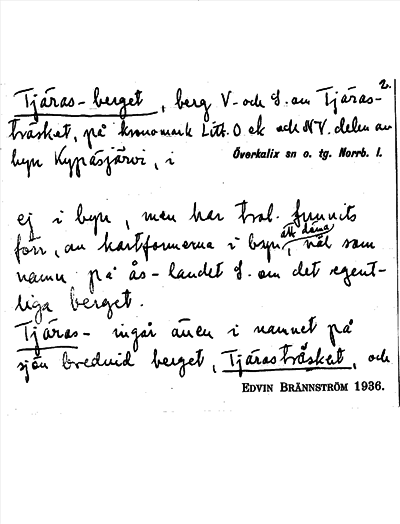 2.
Tjäras-berget, berg V. och S. om Tjäras-
träsket, på kronomark Litt. O ek och NV. delen av
byn Kypäsjärvi, i
Överkalix sn o. tg. Norrb. l.
ej i byn, men har trol. funnits
förr, av kartformerna i byn, att döma,
väl som
namn på ås-landet S. om det egent-
liga berget.
Tjäras- ingår även i namnet på
sjön bredvid berget, Tjärasträsket, och
EDVIN BRÄNNSTRÖM 1936.